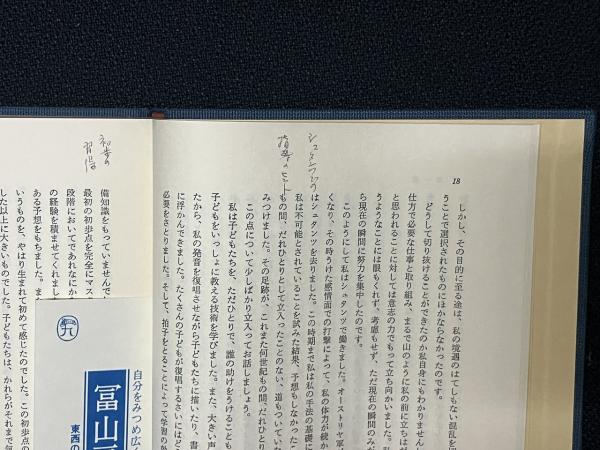 18
しかし、その目的に至る途は、私の境遇のはてしない混乱を
うことで選択されたものにほかならなかったのです。
どうして切り抜けることができたのか私自身にもわかりません
仕方で必要な仕事と取り組み、まるで山のように私の前に立ちはだ
と思われることに対しては意志の力でもって立ち向かいました。
うようなことには眼もくれず、考慮もせず、ただ現在の瞬間のみが
ら現在の瞬間に努力を集中したのです。
このようにして私はシュタンツで働きました。オーストリヤ軍
くなり、その時うけた感情面での打撃によって、私の体力が続か
はシュタンツを去りました。この時期まで私は私の手法の基礎に
私は不可能とされていることを試みた結果、予想もしなかったこ
もの間、だれひとりとして立入ったことのない、道もついていな
みつけました。その足跡が、これまた何世紀もの間、だれひとり
この点について少しばかり立入ってお話しましょう。
私は子どもたちを、ただひとりで、誰の助けをうけることも
子どもをいっしょに教える技術を学びました。また、大きい声
たから、私の発音を復唱させながら子どもたちに描いたり、書
に浮かんできました。たくさんの子どもが復唱するさいにはど
必要をさとりました。そして、拍子をとることによって学習の効
シュタンツでの
指導のヒント
初歩の
習得
備知識をもっていませんで
最初の初歩点を完全にマス
段階においてであれなにか
の経験を積ませてくれまし
ある予想をもちました。ま
いうものを、やはり生まれて初めて感じたのでした。この初歩点の
した以上に大きいものでした。子どもたちは、かれらがそれまで気
自分をみつめ広く
冨山
東西の